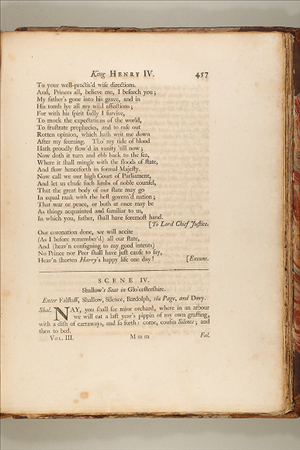 King HENRY IV. 457
To your well-practis'd wise directions.
And, Princes all, believe me, I beseech you;
My father's gone into his grave, and in
His tomb lye all my wild affections;
For with his spirit sadly I survive,
To mock the expectations of the world,
To frustrate prophecies, and to raze out
Rotten opinion, which hath writ me down
After my seeming. Tho' my tide of blood
Hath proudly flow'd in vanity 'till now;
Now doth it turn and ebb back to the sea,
Where it shall mingle with the floods of state,
And flow henceforth in formal Majesty.
Now call we our high Court of Parliament,
And let us chuse such limbs of noble counsel,
That the great body of our state may go
In equal rank with the best govern'd nation;
That war or peace, or both at once may be
As things acquainted and familiar to us,
In which you, father, shall have foremost hand.
[To Lord Chief Justice.
Our coronation done, we will accite
(As I before remember'd) all our state,
And (heav'n consigning to my good intents)
No Prince nor Peer shall have just cause to say,
Heav'n shorten Harry's happy life one day! [Exeunt.
SCENE IV.
Shallow's Seat in Glo'cestershire.
Enter Falstaff, Shallow, Silence, Bardolph, the Page, and Davy.
Shal. NAY, you shall see mine orchard, where in an arbour
we will eat a last year's pippin of my own graffing,
with a dish of carraways, and so forth: come, cousin Silence; and
then to bed.
VOL. III. M m m Fal.